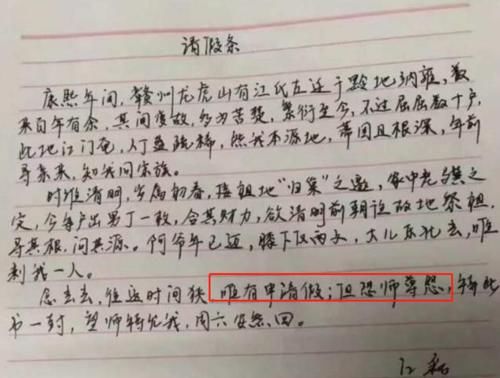 请假条
康熙年间，赣州龙虎山有江氏左迁于黔地纳雍，数
来百年有余，其间变故，多为苦楚，繁衍至今，不过屈屈数十户，
此地江门奄，人丁益稀，然我本源地，蒂固且根深，年前
寻亲来，知我同宗族。
时维清明，岁属初春，接祖地“归巢”之邀，家中老
定，今每户出男丁一枚，合其财力，欲清明前朝诣故地祭祖，
寻其根，问其源。何奈年已迈，膝下仅两子，大儿东北去，唯
剩我一人。
念去去，往返时间狭，唯有申请假；但恐师尊怒，特此
书一封，望师特允我，周六安然回。
江